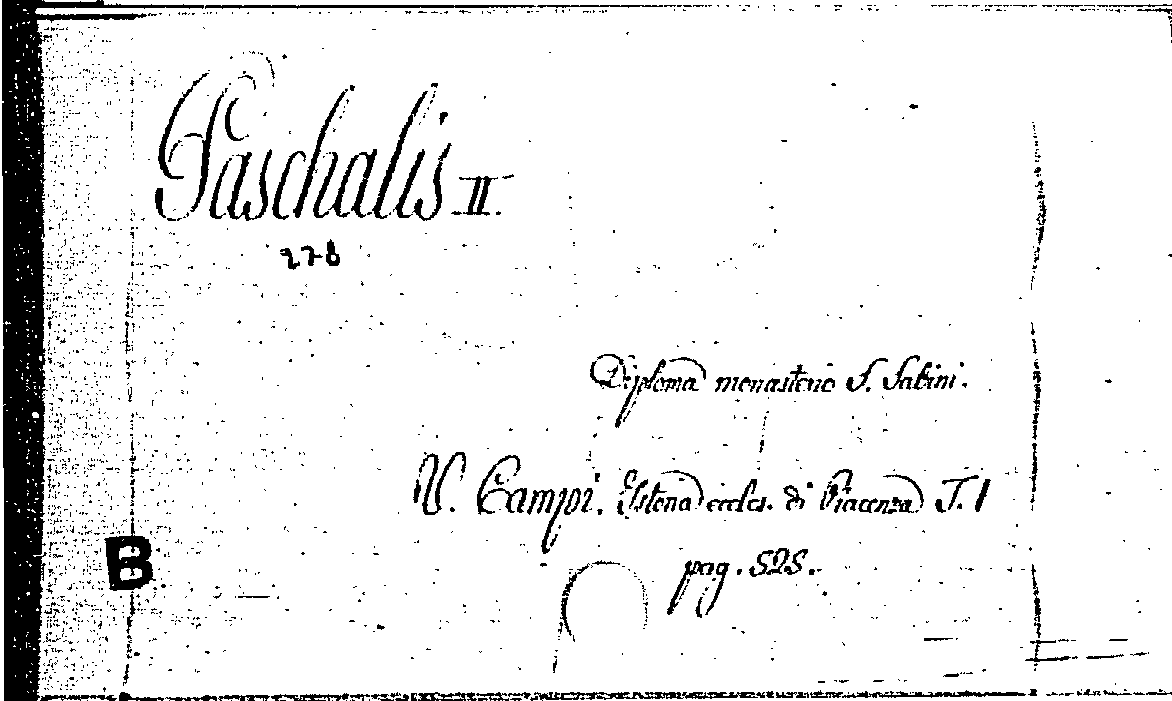 Paschalis II.
278
Diploma monasterio S. Sabini.
V. Campi. Istoria eccles. di Piacenza T. 1
B
pag. 525.